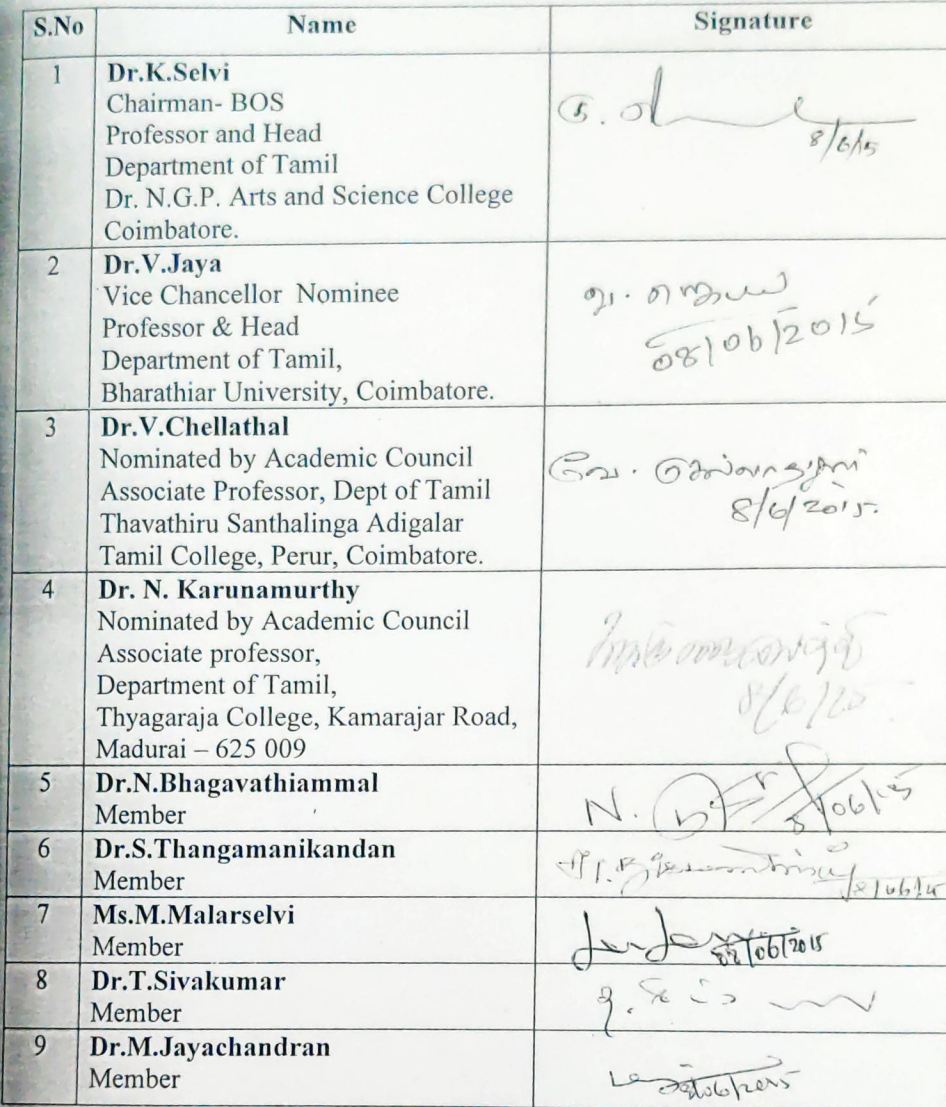 S.No Name Signature
1 Dr.K.Selvi
Chairman- BOS
Professor and Head
Department of Tamil
Dr. N.G.P. Arts and Science College
Coimbatore.
8/6/15
2 Dr.V.Jaya
Vice Chancellor Nominee
Professor & Head
Department of Tamil,
Bharathiar University, Coimbatore.
வ. ஜெயா
08/06/2015
3 Dr.V.Chellathal
Nominated by Academic Council
Associate Professor, Dept of Tamil
Thavathiru Santhalinga Adigalar
Tamil College, Perur, Coimbatore.
வே. செல்லாத்தாள்
8/6/2015.
4 Dr. N. Karunamurthy
Nominated by Academic Council
Associate professor,
Department of Tamil,
Thyagaraja College, Kamarajar Road,
Madurai – 625 009
8/6/15
5 Dr.N.Bhagavathiammal
Member
N. 8/06/15
6 Dr.S.Thangamanikandan
Member
8/06/15
7 Ms.M.Malarselvi
Member
08/06/2015
8 Dr.T.Sivakumar
Member
9 Dr.M.Jayachandran
Member
08/06/2015